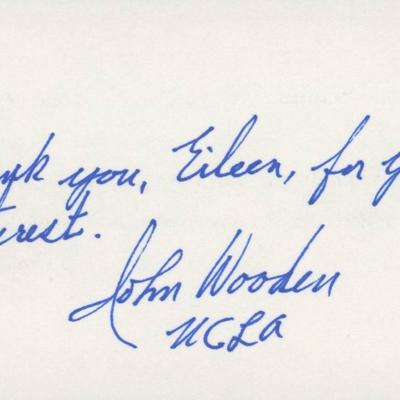 nk you, Eileen, for y
terest.
John Wooden
UCLA